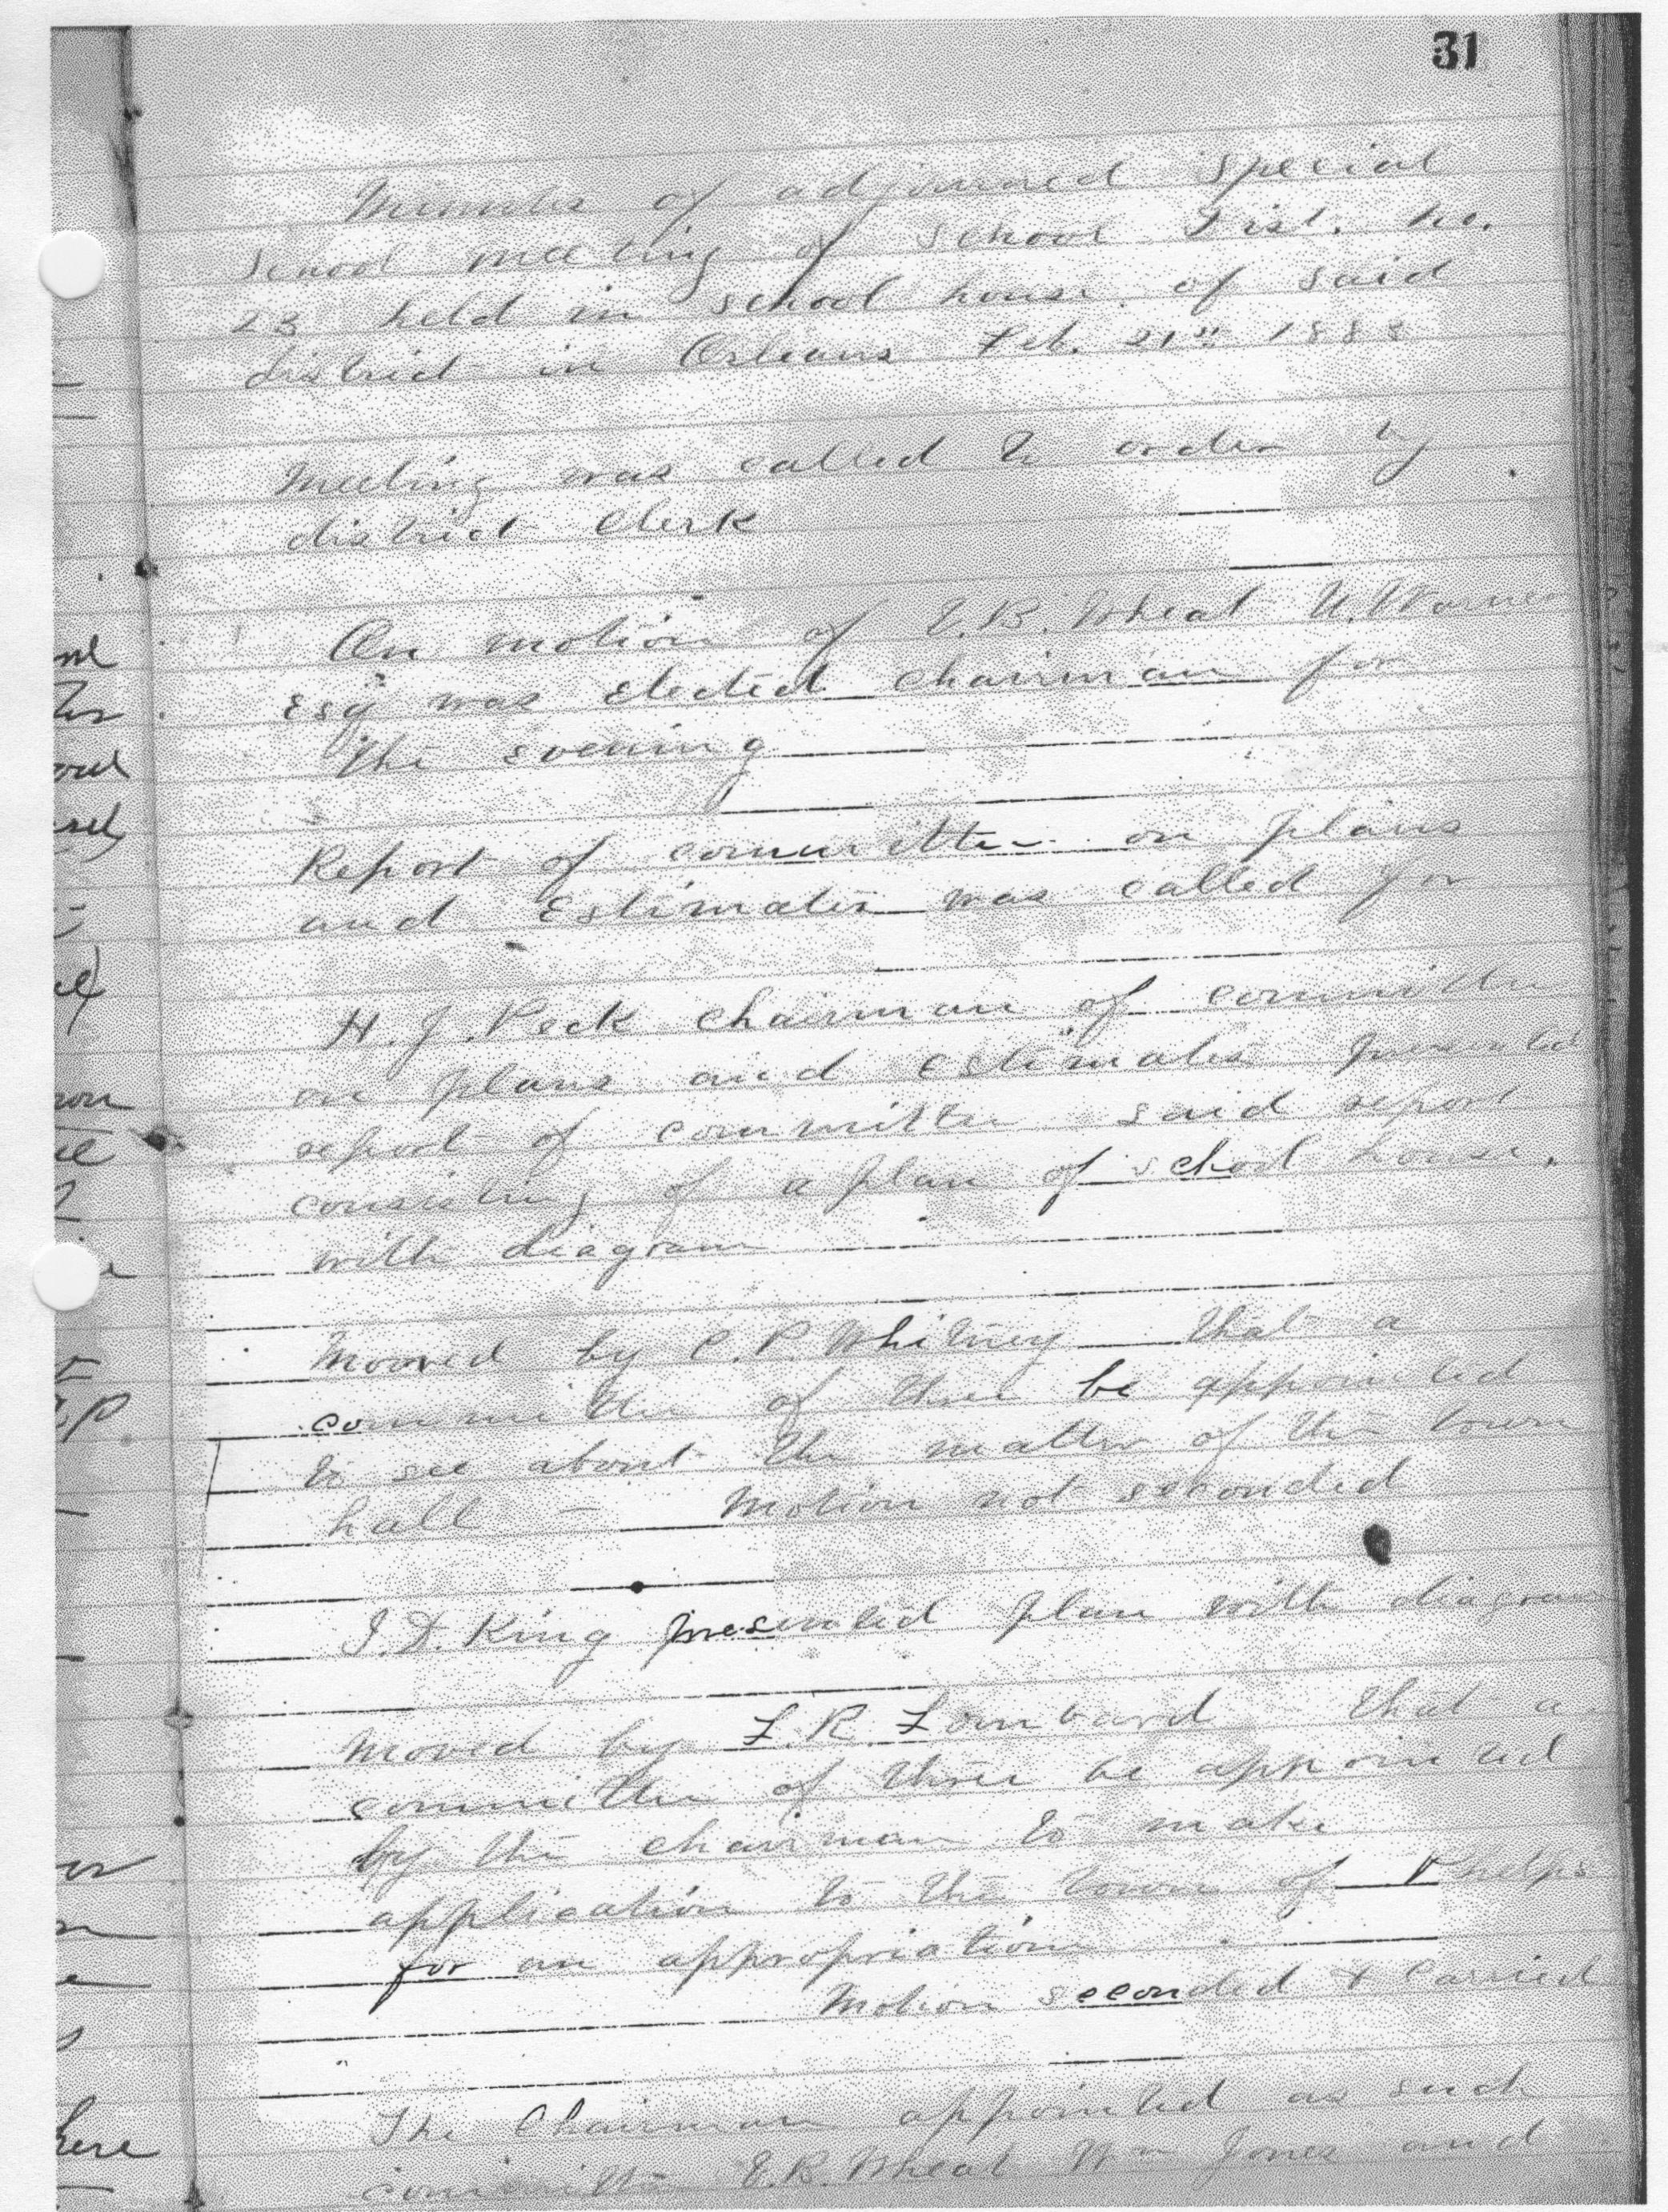 31
Minutes of adjourned special
school meeting of school Dist. No.
23 held in school house of said
district in Orleans Feb. 21st 1888
Meeting was called to order by
district Clerk
On motion of E.B. Wheat U. Warner
Esq was elected chairman for
the evening
Report of committee on plans
and Estimates was called for
H. J. Peck chairman of committee
on plans and estimates presented
report of committee said report
consisting of a plan of school house
with diagram
Mooved by C. P. Whitney that a
committee of three be appointed
to see about the matter of the town
hall – Motion not seconded
I. D. King presented plan with diagram
Moved by L. R. Lombard that a
committee of three be appointed
by the chairman to make
application to the town of Phelps
for an appropriation
Motion seconded & Carried
The Chairman appointed as such
committee E. B. Wheat Wm Jones and
nd
ord
non
P.
er
here